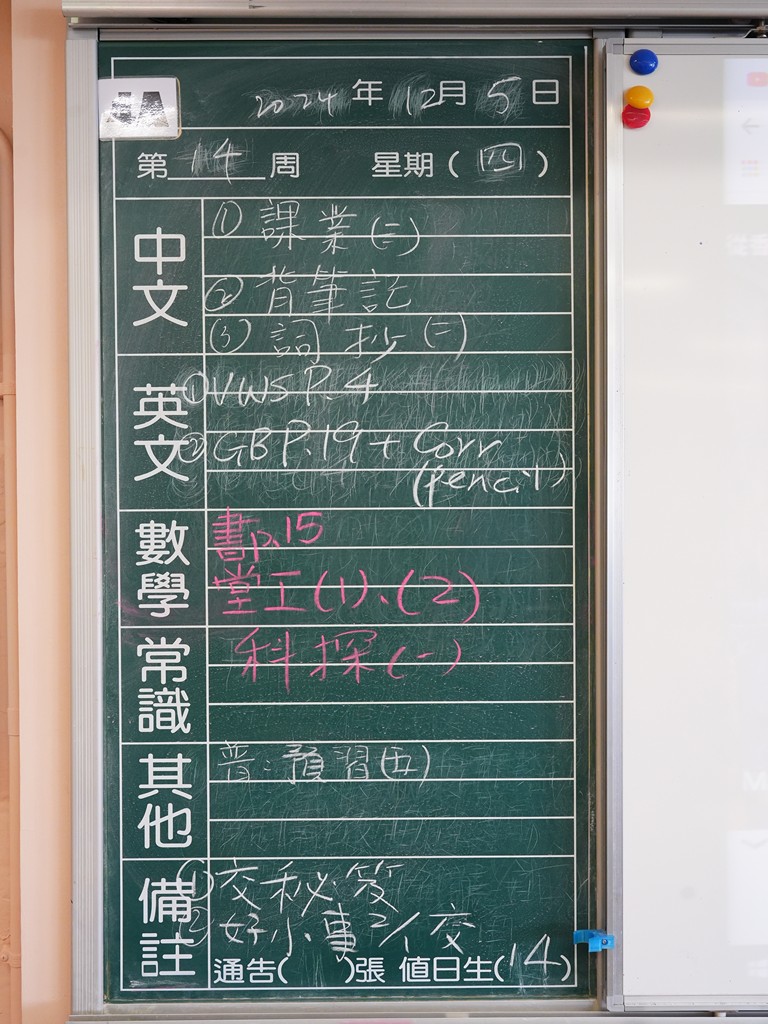 2024年12月5日
第14周 星期(四)
中文
① 課業(二)
② 背筆記
③ 詞抄(二)
英文
① VWS P.4
② GB P.19 + Corr
(pencil)
數學
書p.15
堂工(1)、(2)
常識
科探(一)
其他
普:預習(五)
備註
① 交秘笈
② 好小事 2/1 交
通告( )張 值日生(14)